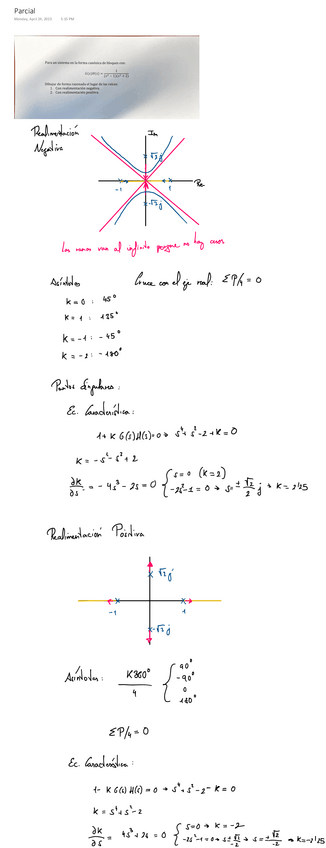 Parcial
Monday, April 20, 2015 5:35 PM
Para un sistema en la forma canónica de bloques con:
Dibujar de forma razonada el lugar de las raíces:
1. Con realimentación negativa.
2. Con realimentación positiva.
Realimentación
Negativa
Im
√2 j
-1 1 Re
-√2 j
Las ramas van al infinito porque no hay ceros
Asíntotas Cruce con el eje real: ΣP/4 = 0
K = 0 : 45°
K = 1 : 135°
K = -1 : -45°
K = -2 : -180°
Puntos Singulares:
Ec. Característica:
1 + K G(s)H(s) = 0 → s⁴ + s² - 2 + K = 0
K = -s⁴ - s² + 2
∂K/∂s = -4s³ - 2s = 0 { s = 0 (K = 2)
-2s² - 1 = 0 → s = ± √2/2 j → K = 2'25
Realimentación Positiva
√2 j
-1 1
-√2 j
Asíntotas: K360°/4 { 90°
-90°
0
180°
ΣP/4 = 0
Ec. Característica:
1 - K G(s) H(s) = 0 → s⁴ + s² - 2 - K = 0
K = s⁴ + s² - 2
∂K/∂s = 4s³ + 2s = 0 { s = 0 → K = -2
→ K = -2'25